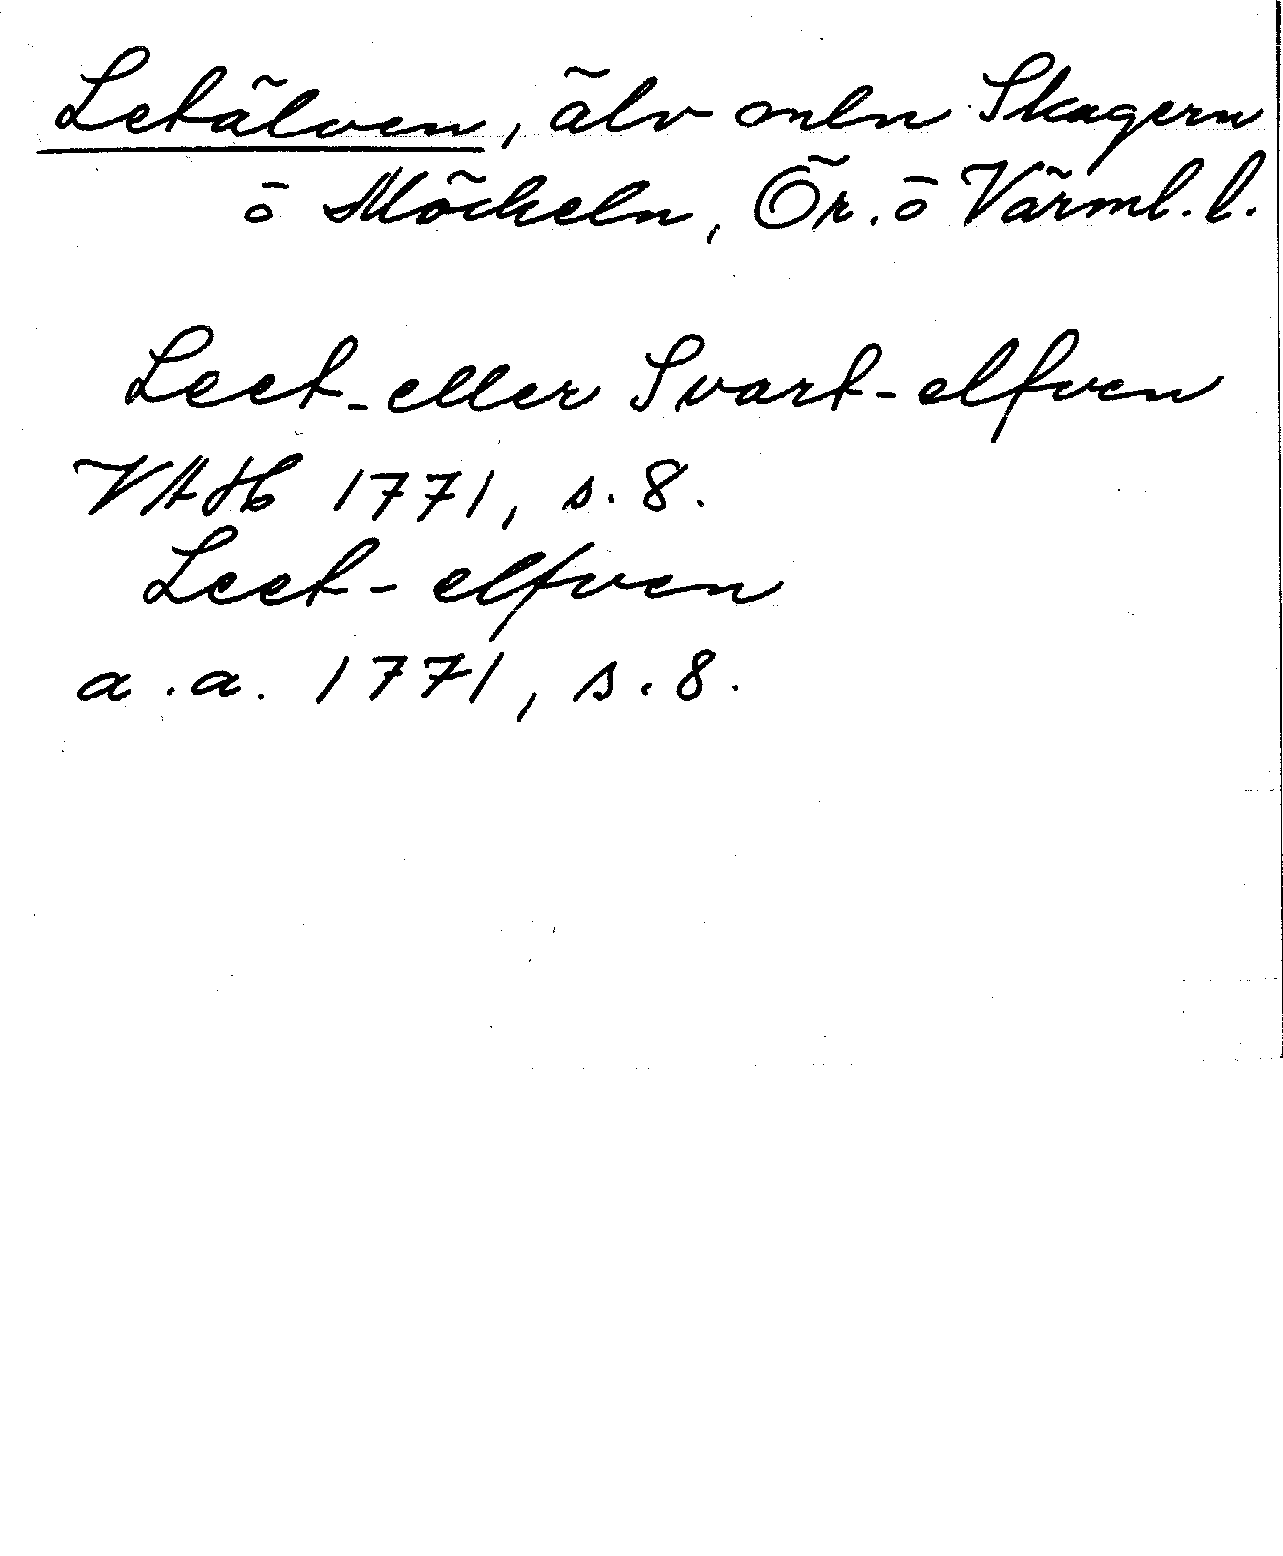 Letälven, älv mln Skagern
ö Möckeln, Ör. ö Värml. l.
Leet- eller Svart-elfven
VAH 1771, s. 8.
Leet-elfven
a.a. 1771, s. 8.